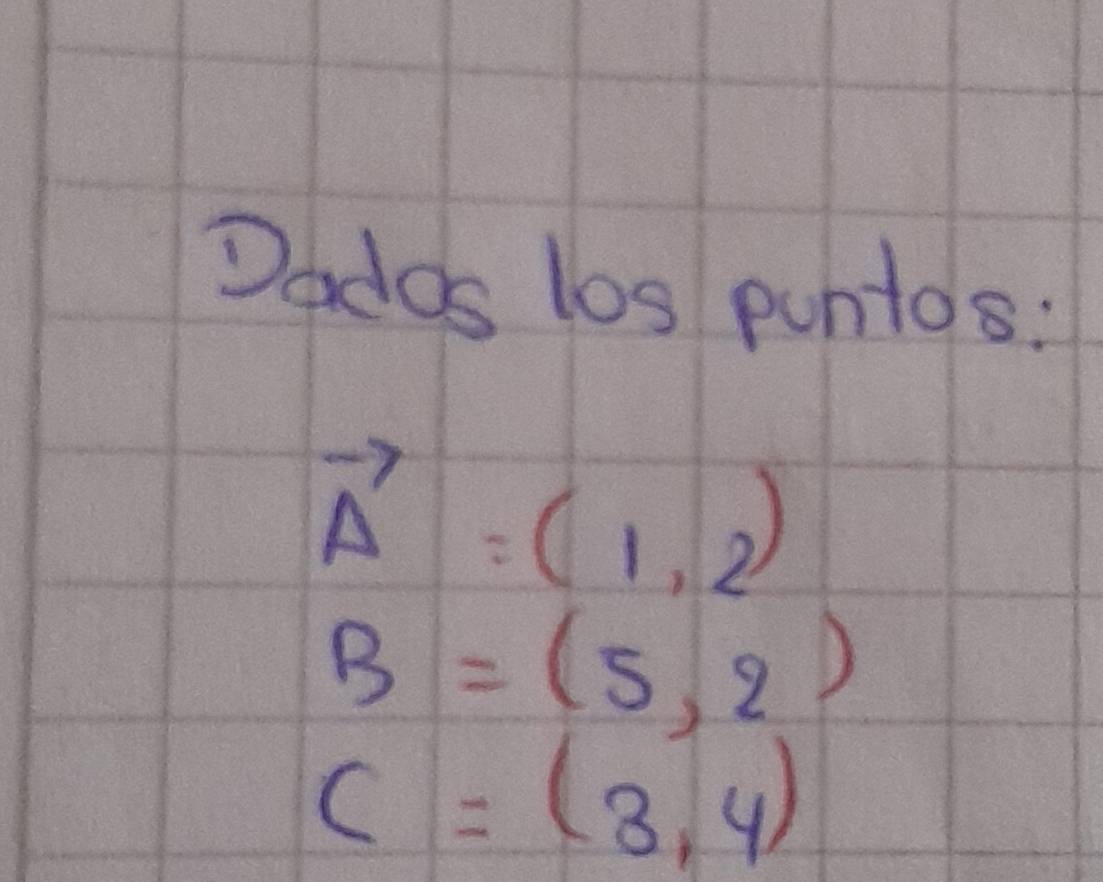 Dados los puntos:
→
A = (1, 2)
B = (5, 2)
C = (3, 4)